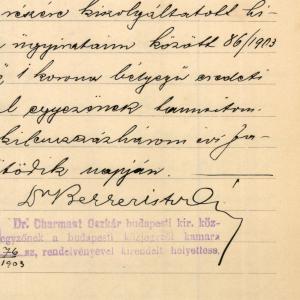 részére kiszolgáltatott hi-
ügyirataim között 86/1903
1 korona bélyegü eredeti
egyezőnek tanusitom.
kilencszázhárom évi Ja-
ötödik napján.
Dr
Dr. Charmant Oszkár budapesti kir. köz-
egyzőnek a budapesti közjegyzői kamara
76 sz. rendelvényével kirendelt helyettese.
1903